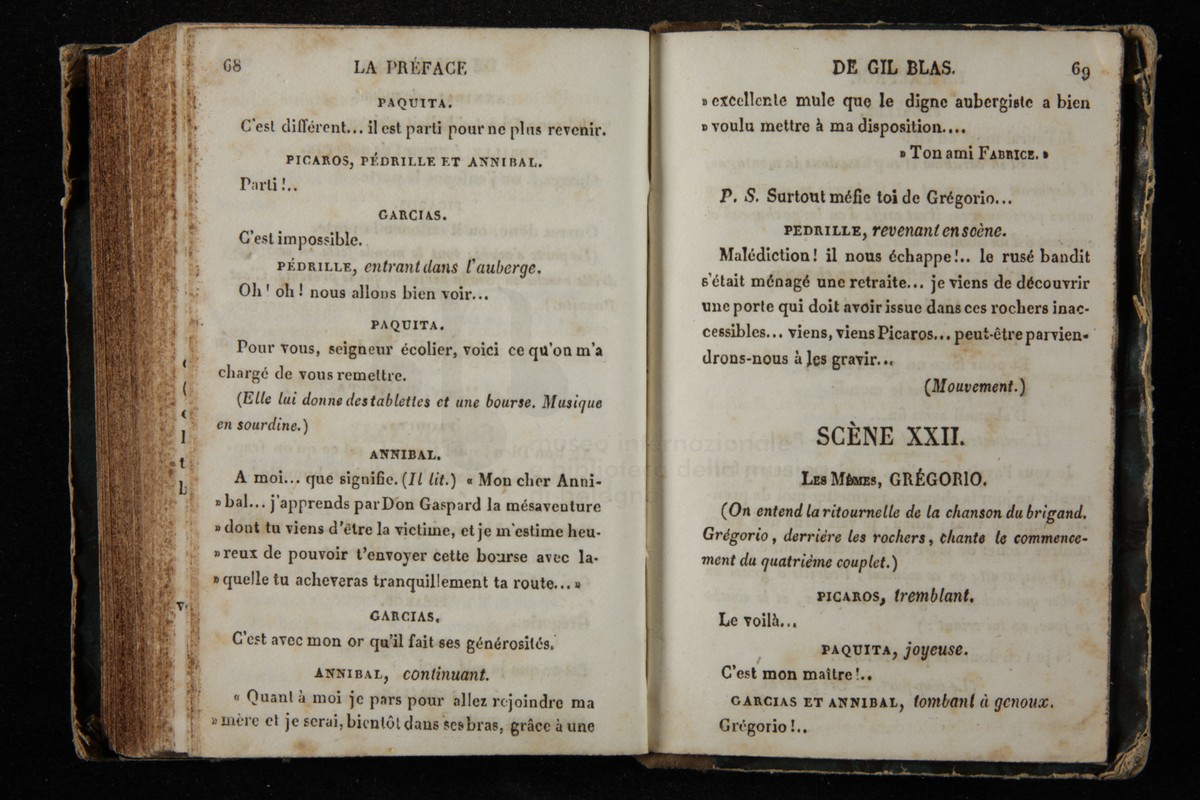 68
LA PRÉFACE
PAQUITA.
C'est différent... il est parti pour ne plus revenir.
PICAROS, PÉDRILLE ET ANNIBAL.
Parti !..
GARCIAS.
C'est impossible.
PÉDRILLE, entrant dans l'auberge.
Oh ! oh ! nous allons bien voir...
PAQUITA.
Pour vous, seigneur écolier, voici ce qu'on m'a
chargé de vous remettre.
(Elle lui donne des tablettes et une bourse. Musique
en sourdine.)
ANNIBAL.
A moi... que signifie. (Il lit.) « Mon cher Anni-
» bal... j'apprends par Don Gaspard la mésaventure
» dont tu viens d'être la victime, et je m'estime heu-
» reux de pouvoir t'envoyer cette bourse avec la-
» quelle tu acheveras tranquillement ta route... »
GARCIAS.
C'est avec mon or qu'il fait ses générosités.
ANNIBAL, continuant.
« Quant à moi je pars pour allez rejoindre ma
» mère et je serai, bientôt dans ses bras, grâce à une
DE GIL BLAS.
69
» excellente mule que le digne aubergiste a bien
» voulu mettre à ma disposition....
» Ton ami FABRICE. »
P. S. Surtout méfie toi de Grégorio...
PEDRILLE, revenant en scène.
Malédiction ! il nous échappe !.. le rusé bandit
s'était ménagé une retraite... je viens de découvrir
une porte qui doit avoir issue dans ces rochers inac-
cessibles... viens, viens Picaros... peut-être parvien-
drons-nous à les gravir...
(Mouvement.)
SCÈNE XXII.
LES MÊMES, GRÉGORIO.
(On entend la ritournelle de la chanson du brigand.
Grégorio, derrière les rochers, chante le commence-
ment du quatrième couplet.)
PICAROS, tremblant.
Le voilà...
PAQUITA, joyeuse.
C'est mon maître !..
GARCIAS ET ANNIBAL, tombant à genoux.
Grégorio !..
museo internazionale
e biblioteca della musica